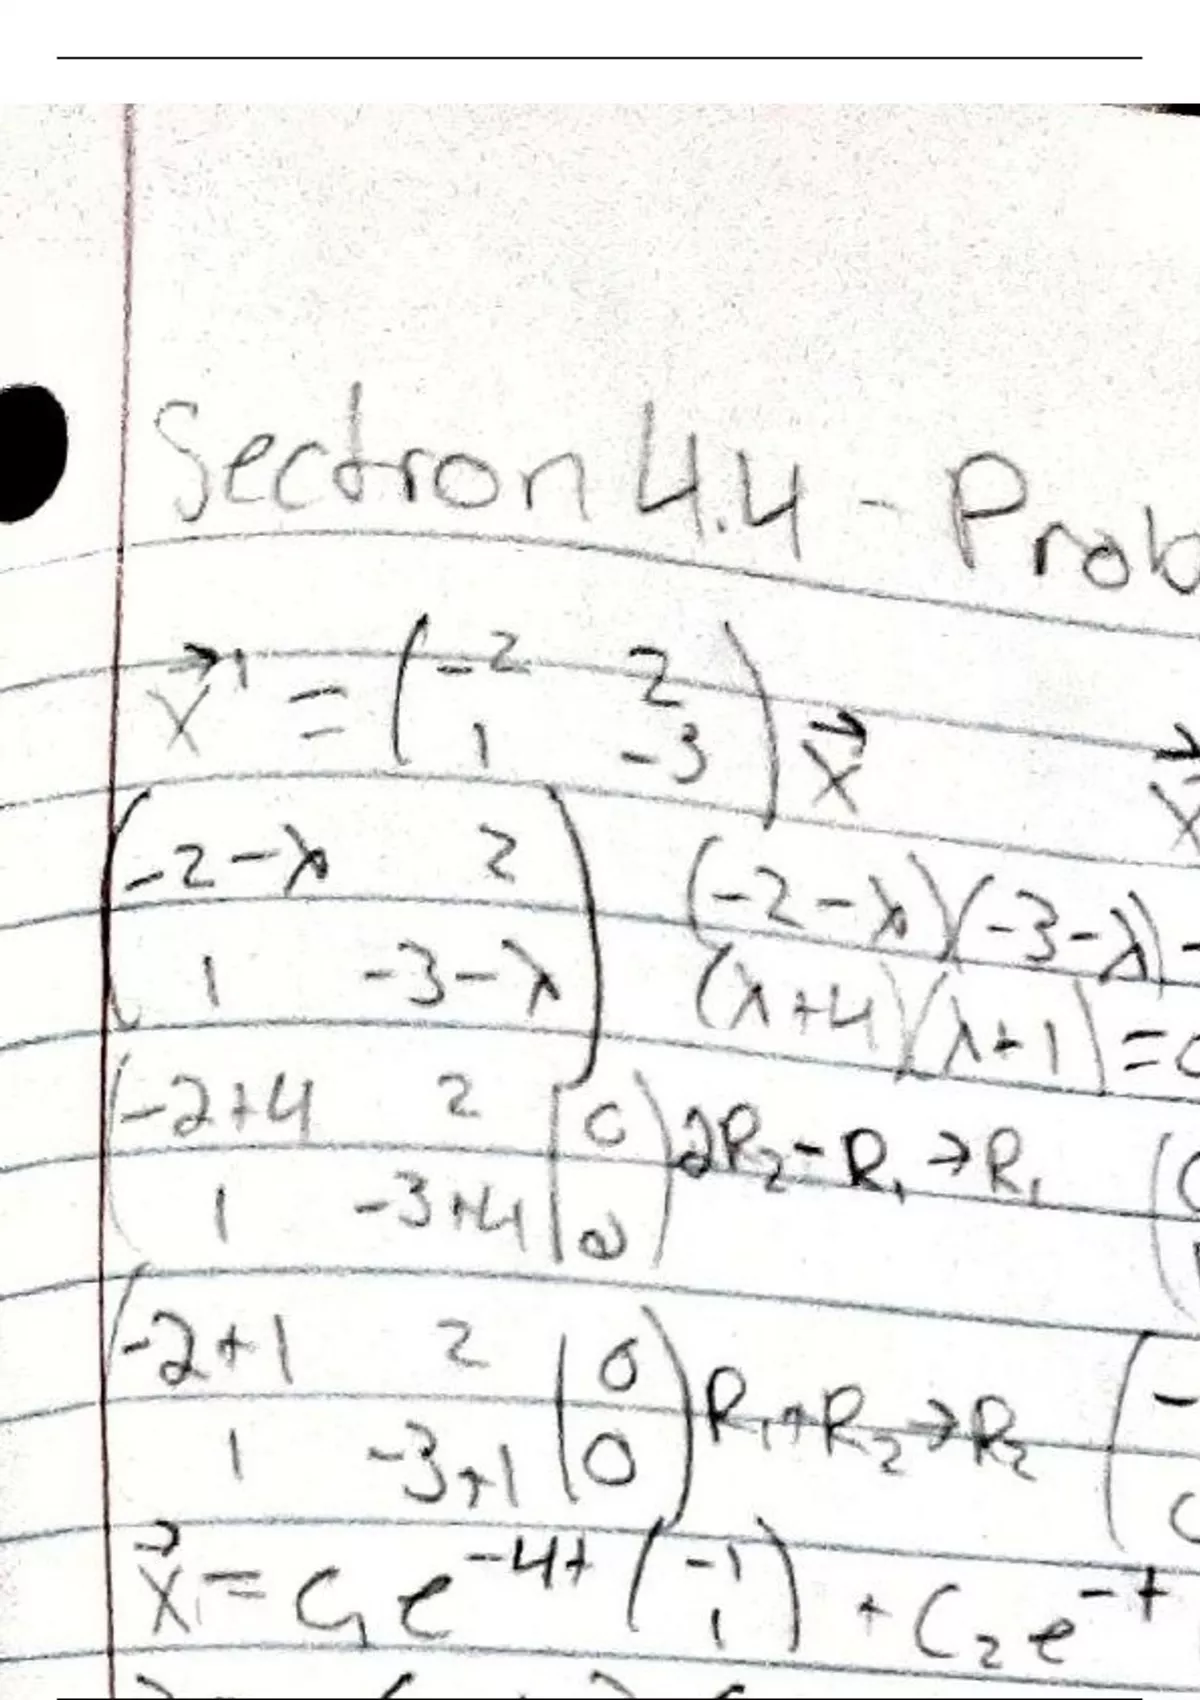 Section 4.4 - Prob
x⃗' = (-2 2; 1 -3) x⃗ x⃗
(-2-λ 2; 1 -3-λ) (-2-λ)(-3-λ)-
(λ+4)(λ+1)=0
(-2+4 2 | 0; 1 -3+4 | 0) 2R₂-R₁→R₁ (
(-2+1 2 | 0; 1 -3+1 | 0) R₁+R₂→R₂ (-
x⃗ = C₁e^-4t (-1; 1) + C₂e^-t